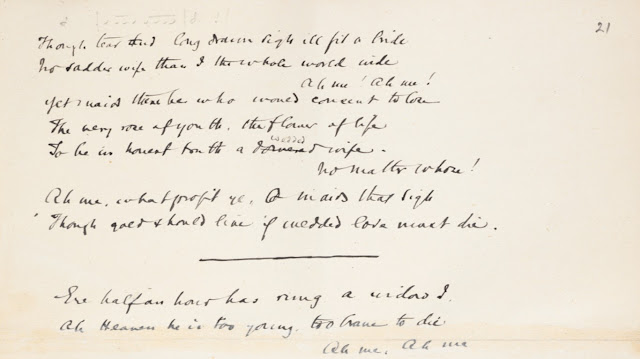 21
Though tear and long drawn sigh ill fit a bride
No sadder wife than I the whole world wide
Ah me! Ah me!
Yet maids there be who would consent to lose
The very rose of youth, the flower of life
To be in honest truth a wedded wife.
No matter whose!
Ah me, what profit ye, O maids that sigh
Though gold should live if wedded love must die.
Ere half an hour has rung a widow I.
Ah Heaven he is too young, too brave to die
Ah me, Ah me